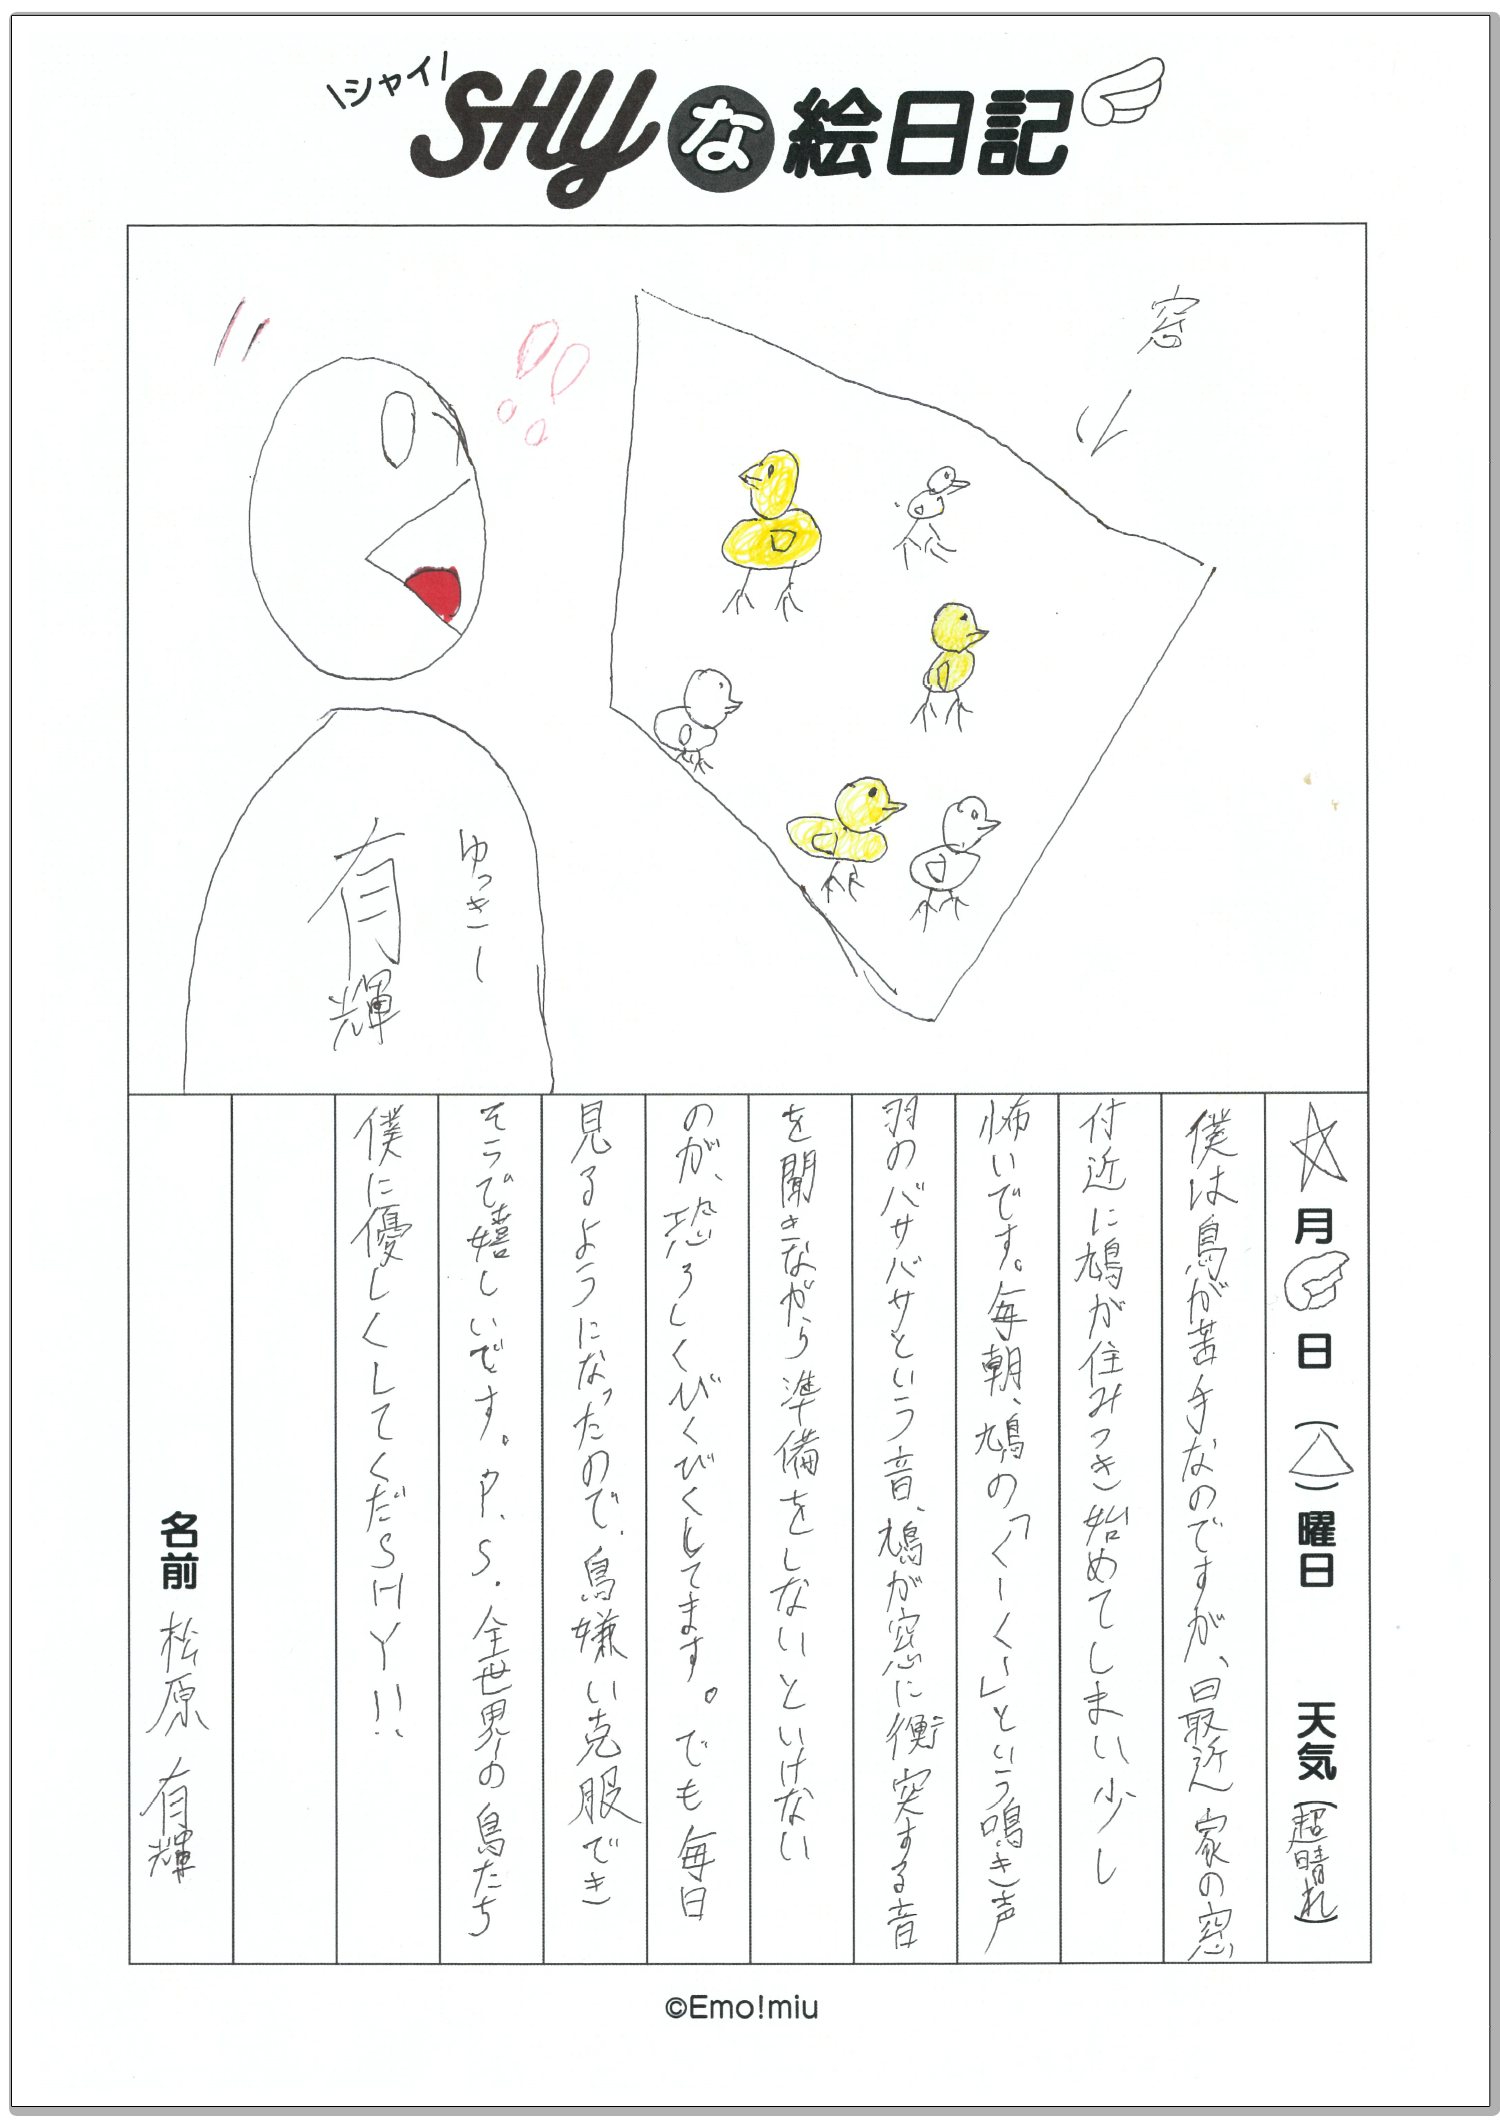 \シャイ/
SHYな絵日記
窓
ゆっきー
有輝
☆月 日(△)曜日 天気(超晴れ)
僕は鳥が苦手なのですが、最近家の窓
付近に鳩が住みつき始めてしまい、少し
怖いです。毎朝、鳩の「くーくー」という鳴き声
羽のバサバサという音、鳩が窓に衝突する音
を聞きながら準備をしないといけない
のが、恐ろしくびくびくしてます。でも毎日
見るようになったので、鳥嫌い克服でき
そうで嬉しいです。P.S.全世界の鳥たち
僕に優しくしてくだSHY!!
名前 松原 有輝
©Emo!miu